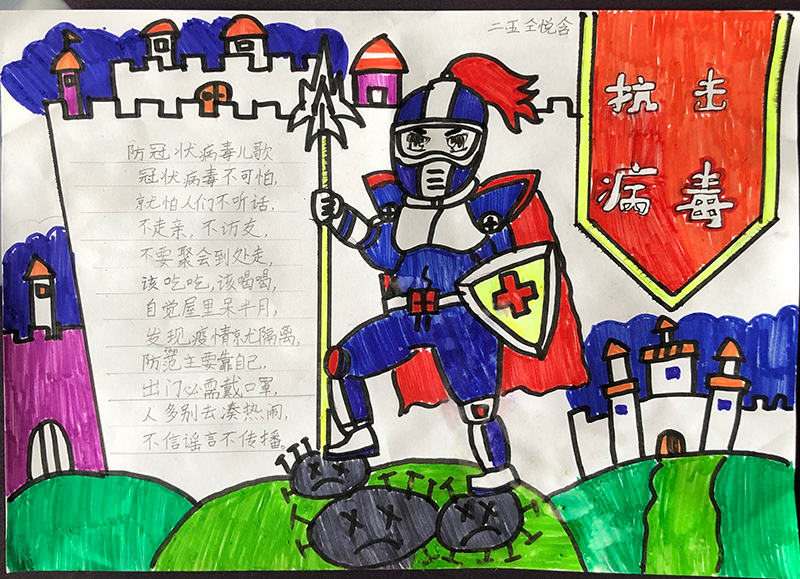 二.五 仝悦含
抗击
病毒
防冠状病毒儿歌
冠状病毒不可怕,
就怕人们不听话,
不走亲,不访友,
不要聚会到处走,
该吃吃,该喝喝,
自觉屋里呆半月,
发现疫情就隔离,
防范主要靠自己,
出门必需戴口罩,
人多别去凑热闹,
不信谣言不传播。